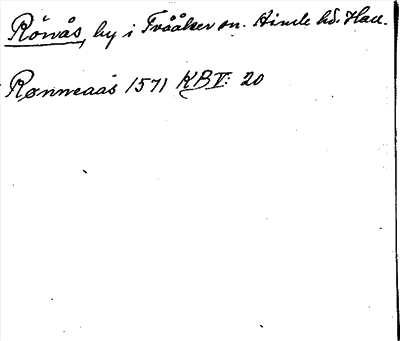 Rönås, by i Tvååker sn. Himle hd. Hall.
Rønneaas 1571 KB V: 20